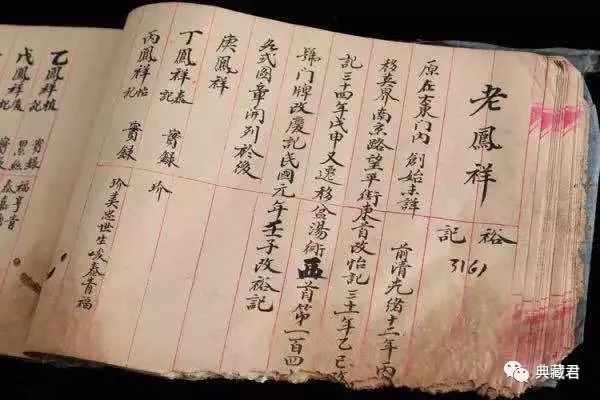 老鳳祥 裕記
原在大東門內 創始未詳 前清光緒十二年內
移英界南京路望平街東首改怡記三十一年乙巳改
記三十四年戊申又遷移盆湯衖西首第一百四
號門牌改慶記民國元年壬子改裕記
各式圖章開列於後
庚鳳祥
丁鳳祥泰記 實錄 珍
丙鳳祥怡記 實錄 珍美忠世生峻春青福
乙鳳祥植記 實錄 福享青
戊鳳祥慶記
典藏君